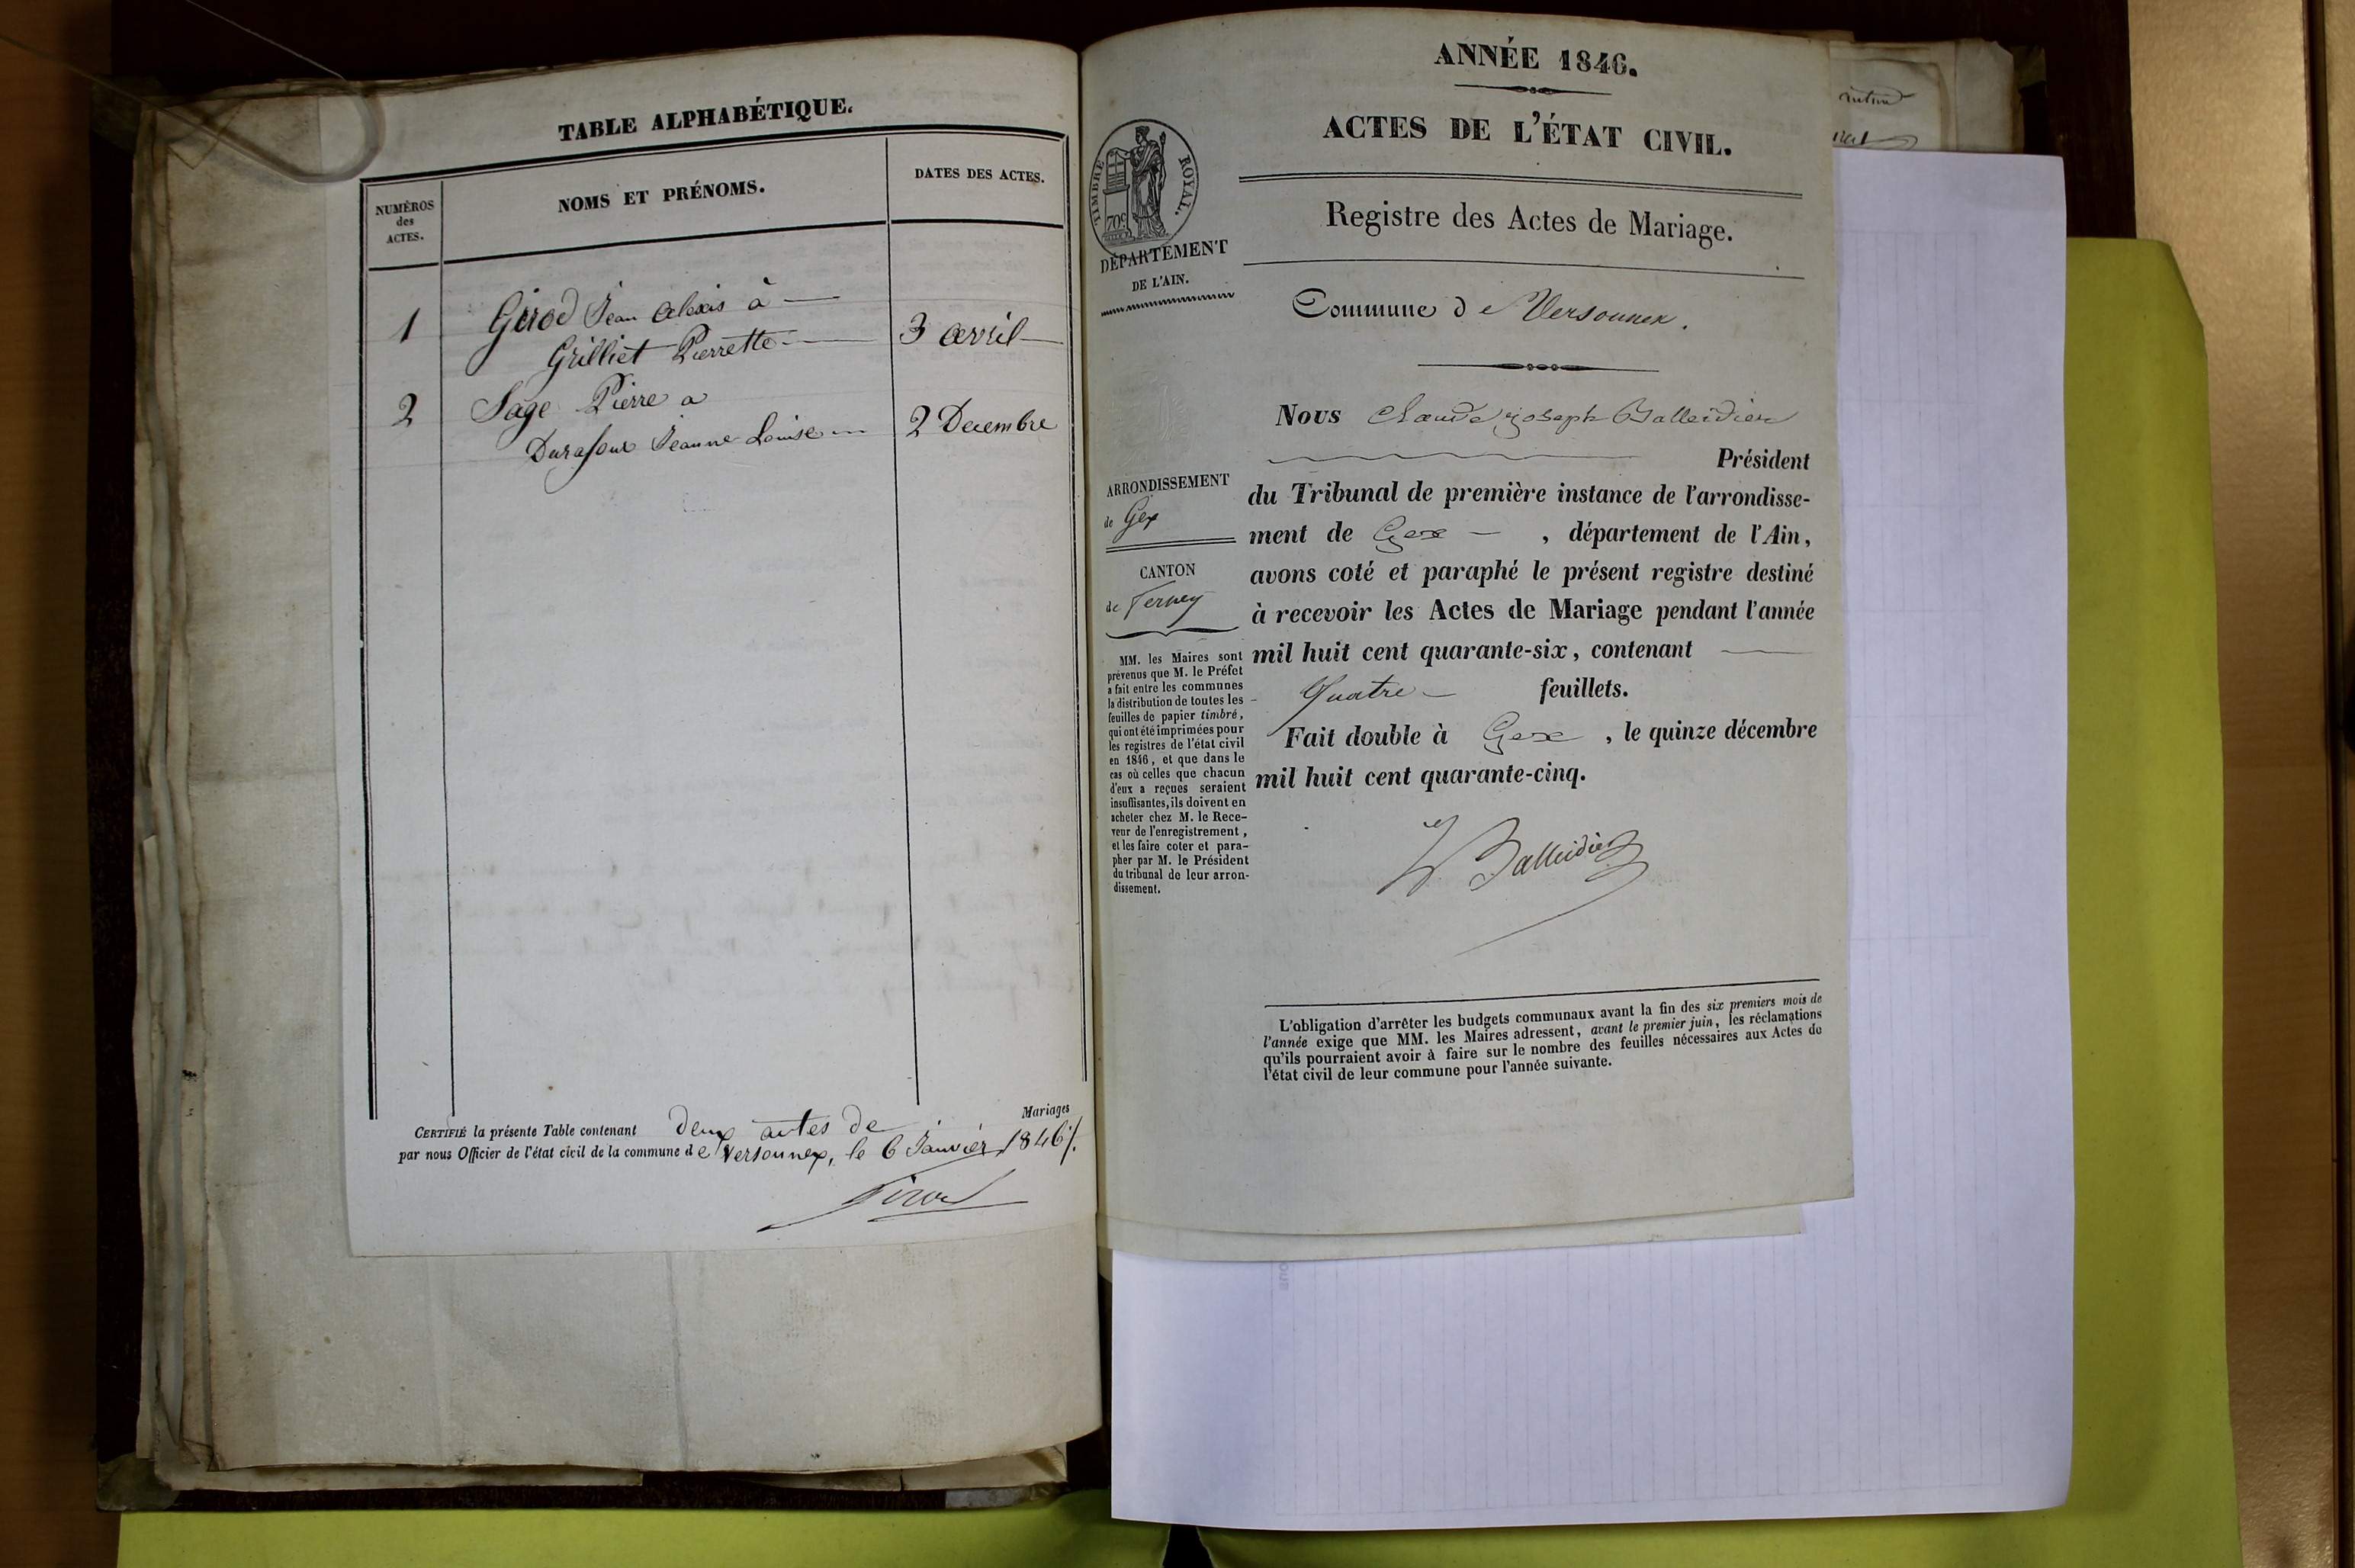 TABLE ALPHABÉTIQUE.
NUMÉROS
des
ACTES.
NOMS ET PRÉNOMS.
DATES DES ACTES.
1
Girod Jean Alexis à
Grilliet Pierrette
3 avril
2
Sage Pierre a
Durafour Jeanne Louise
2 Decembre
CERTIFIÉ la présente Table contenant deux actes de Mariages
par nous Officier de l'état civil de la commune de Versonnex, le 6 Janvier 1846
Girod
ANNÉE 1846.
ACTES DE L'ÉTAT CIVIL.
TIMBRE ROYAL.
70c
DÉPARTEMENT
DE L'AIN.
Registre des Actes de Mariage.
Commune de Versonnex.
ARRONDISSEMENT
de Gex
CANTON
de Ferney
MM. les Maires sont
prévenus que M. le Préfet
a fait entre les communes
la distribution de toutes les
feuilles de papier timbré,
qui ont été imprimées pour
les registres de l'état civil
en 1846, et que dans le
cas où celles que chacun
d'eux a reçues seraient
insuffisantes, ils doivent en
acheter chez M. le Rece-
veur de l'enregistrement,
et les faire coter et para-
pher par M. le Président
du tribunal de leur arron-
dissement.
Nous Claude joseph Balleidier
Président
du Tribunal de première instance de l'arrondisse-
ment de Gex, département de l'Ain,
avons coté et paraphé le présent registre destiné
à recevoir les Actes de Mariage pendant l'année
mil huit cent quarante-six, contenant
Quatre feuillets.
Fait double à Gex, le quinze décembre
mil huit cent quarante-cinq.
Balleidier
L'obligation d'arrêter les budgets communaux avant la fin des six premiers mois de
l'année exige que MM. les Maires adressent, avant le premier juin, les réclamations
qu'ils pourraient avoir à faire sur le nombre des feuilles nécessaires aux Actes de
l'état civil de leur commune pour l'année suivante.